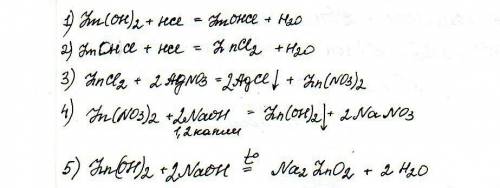 1) Zn(OH)2 + HCl = ZnOHCl + H2O
2) ZnOHCl + HCl = ZnCl2 + H2O
3) ZnCl2 + 2AgNO3 = 2AgCl↓ + Zn(NO3)2
4) Zn(NO3)2 + 2NaOH = Zn(OH)2↓ + 2NaNO3
1,2 капли
5) Zn(OH)2 + 2NaOH t°= Na2ZnO2 + 2H2O